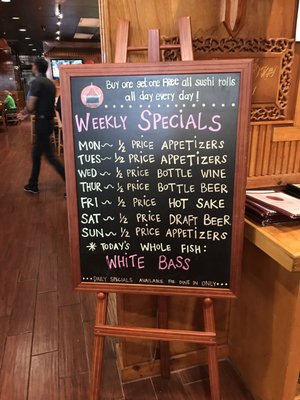 Buy one get one FREE all sushi rolls
all day every day!
WEEKLY SPECIALS
MON~ ½ PRICE APPETIZERS
TUES~ ½ PRICE APPETIZERS
WED~ ½ PRICE BOTTLE WINE
THUR~ ½ PRICE BOTTLE BEER
FRI~ ½ PRICE HOT SAKE
SAT~ ½ PRICE DRAFT BEER
SUN~ ½ PRICE APPETIZERS
* TODAY'S WHOLE FISH:
WHITE BASS
DAILY SPECIALS AVAILABLE FOR DINE IN ONLY